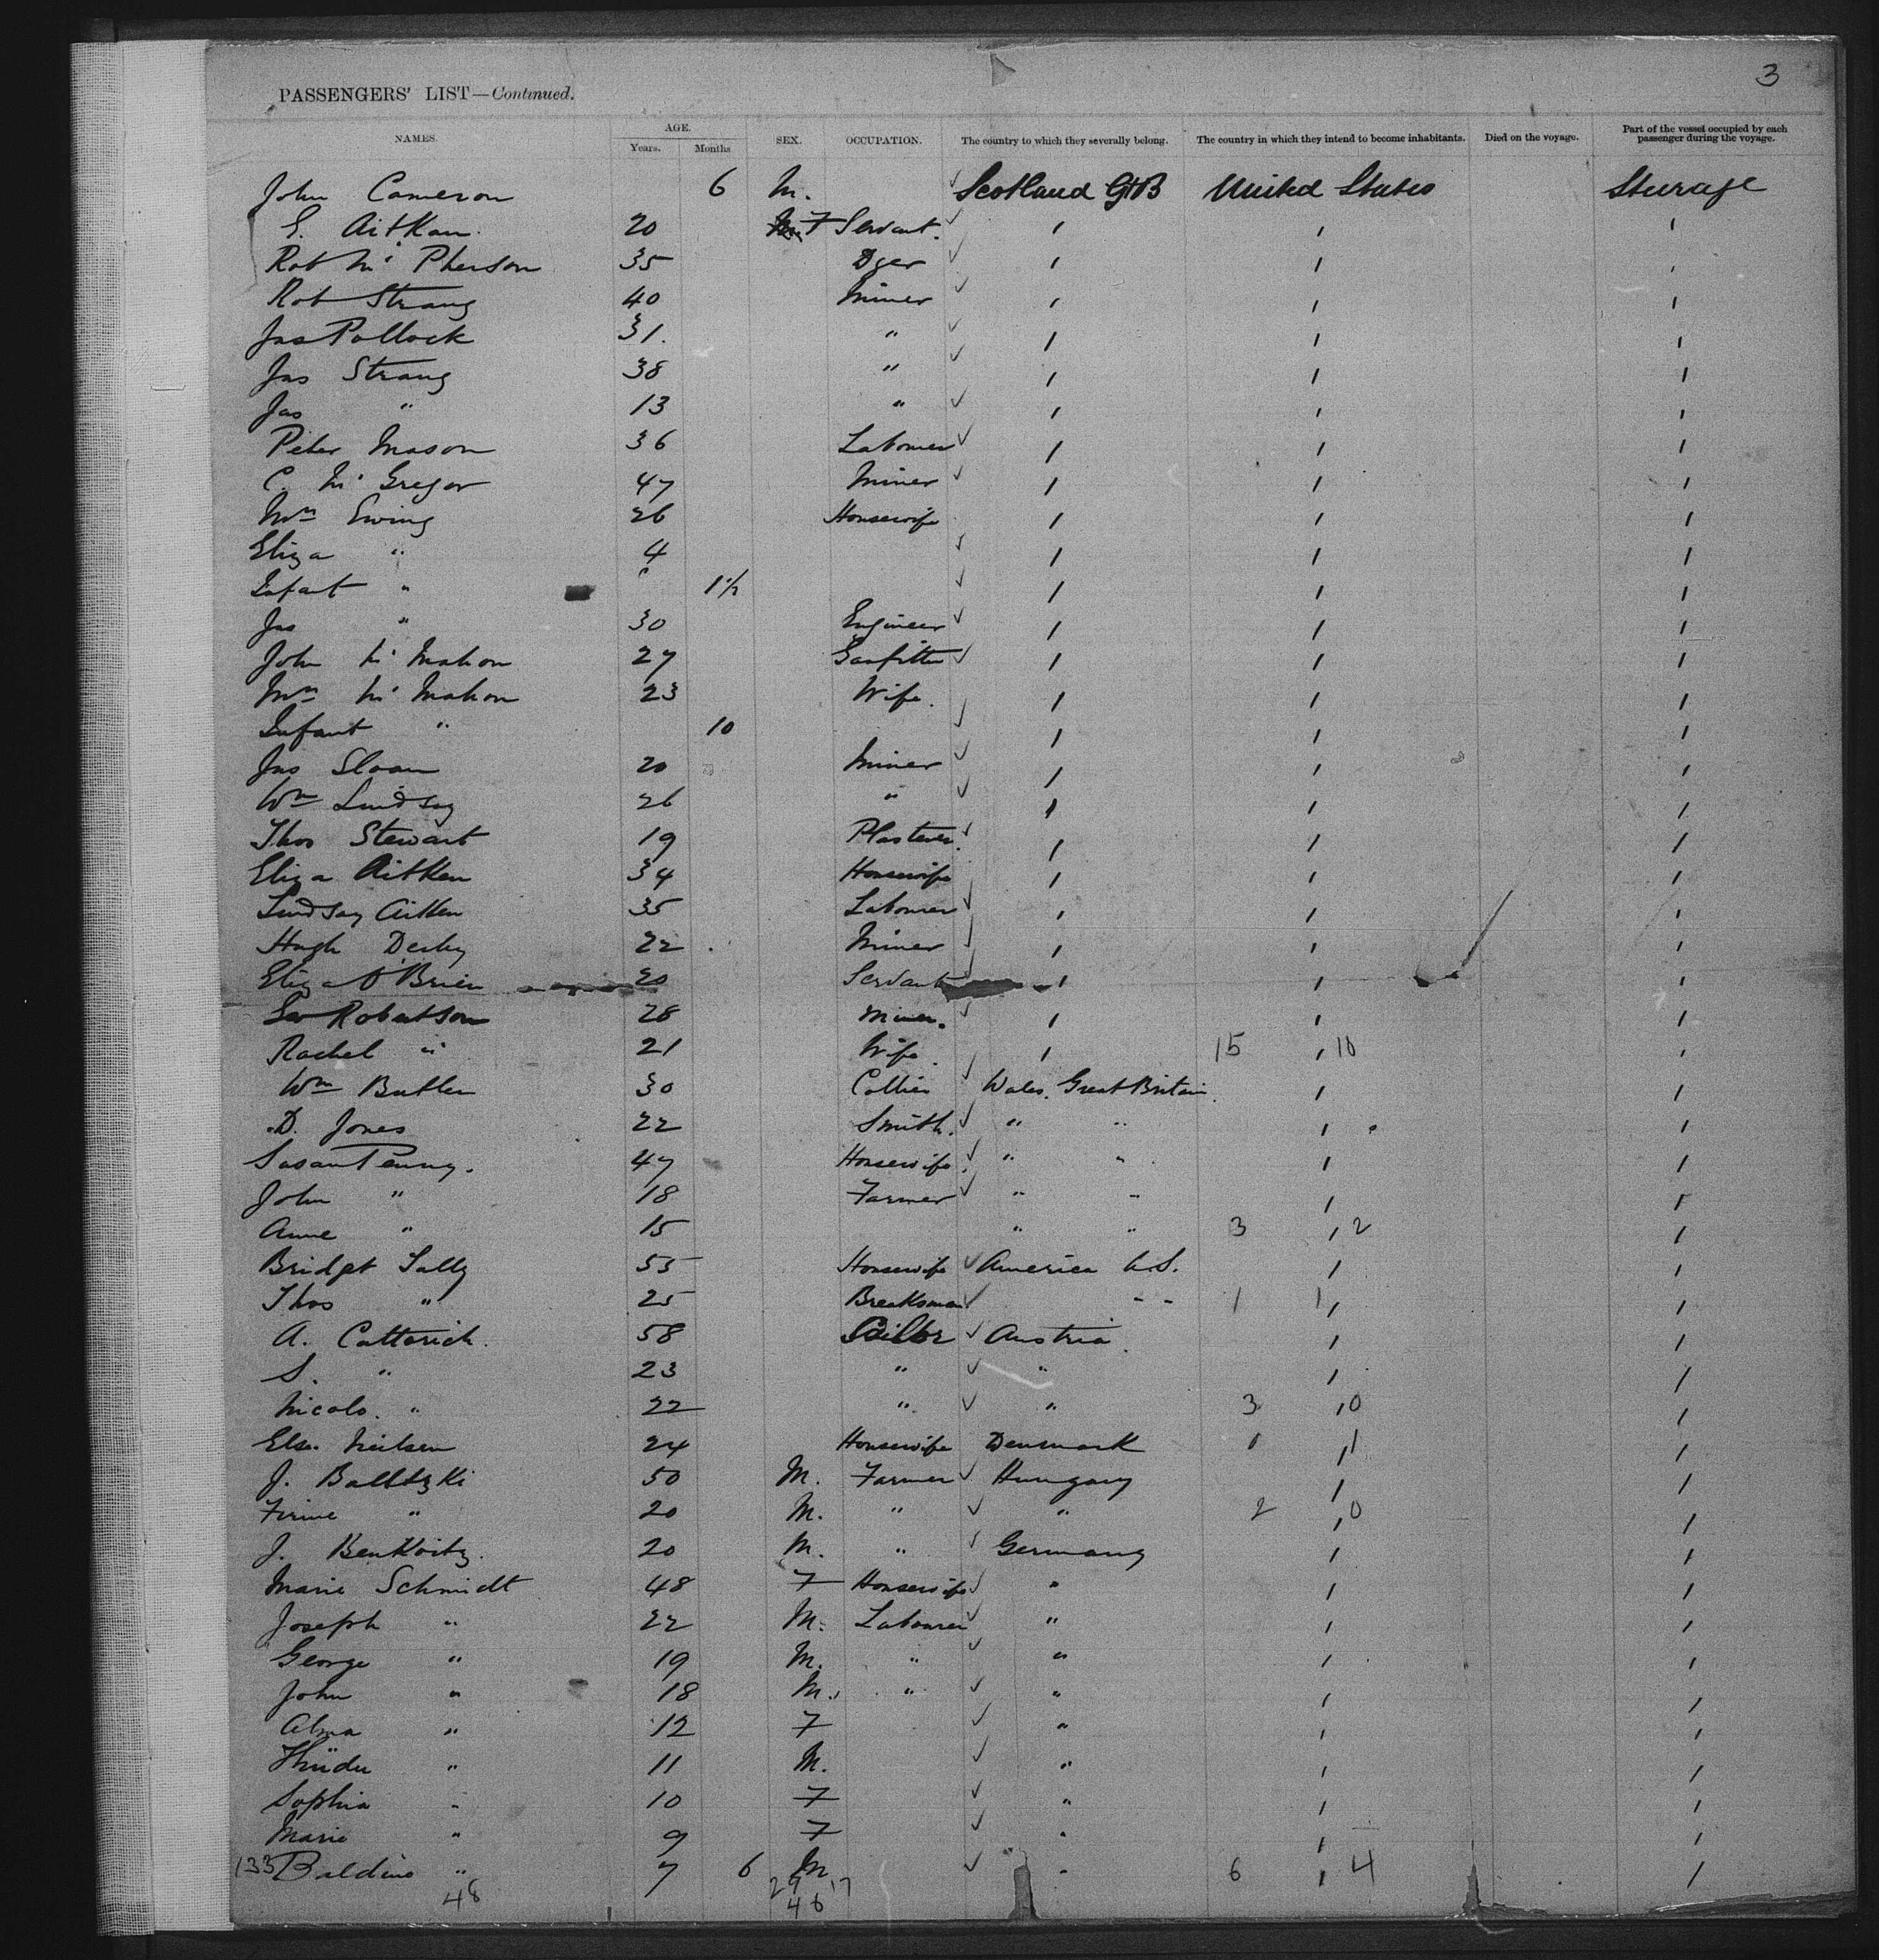 3
PASSENGERS' LIST—Continued.
NAMES. AGE. Years. Months SEX. OCCUPATION. The country to which they severally belong. The country in which they intend to become inhabitants. Died on the voyage. Part of the vessel occupied by each passenger during the voyage.
John Cameron 6 M. Scotland GtB United States Steerage
E. Aitken 20 F Servant.
Rob Mc Pherson 35 Dyer
Rob Strang 40 Miner
Jas Pollock 31. "
Jas Strang 38 "
Jas " 13 "
Peter Mason 36 Labourer
C. Mc Gregor 47 Miner
Mrs Ewing 26 Housewife
Eliza " 4
Infant " 1½
Jas " 30 Engineer
John Mc Mahon 27 Gasfitter
Mrs Mc Mahon 23 Wife.
Infant " 10
Jas Sloan 20 Miner
Wm Lindsay 26 "
Thos Stewart 19 Plasterer.
Eliza Aitken 34 Housewife
Lindsay Aitken 35 Labourer
Hugh 22 Miner
Eliza O'Brien 20 Servant
Robertson 28 Miner.
Rachel " 21 Wife. 15 10
Wm Butler 30 Collier Wales. Great Britain.
D. Jones 22 Smith. " "
Susan Penny. 47 Housewife. " "
John " 18 Farmer " "
Anne " 15 " " 3 2
Bridget Tally 55 Housewife America U.S.
Thos " 25 Breaksman " " 1 1
A. Catterich. 58 Sailor Austria.
S. " 23 " "
Nicolo. " 22 " " 3 0
Else Nielsen 24 Housewife Denmark 0 1
J. 50 M. Farmer Hungary
" 20 M. " " 2 0
J. Benkoitz. 20 M. " Germany
Marie Schmidt 48 F Housewife "
Joseph " 22 M. Labourer "
George " 19 M. " "
John " 18 M. " "
Alma " 12 F "
" 11 M. "
Sophia " 10 F "
Marie " 9 F "
133 Baldino " 7 6 M " 6 4
48 29 17
46